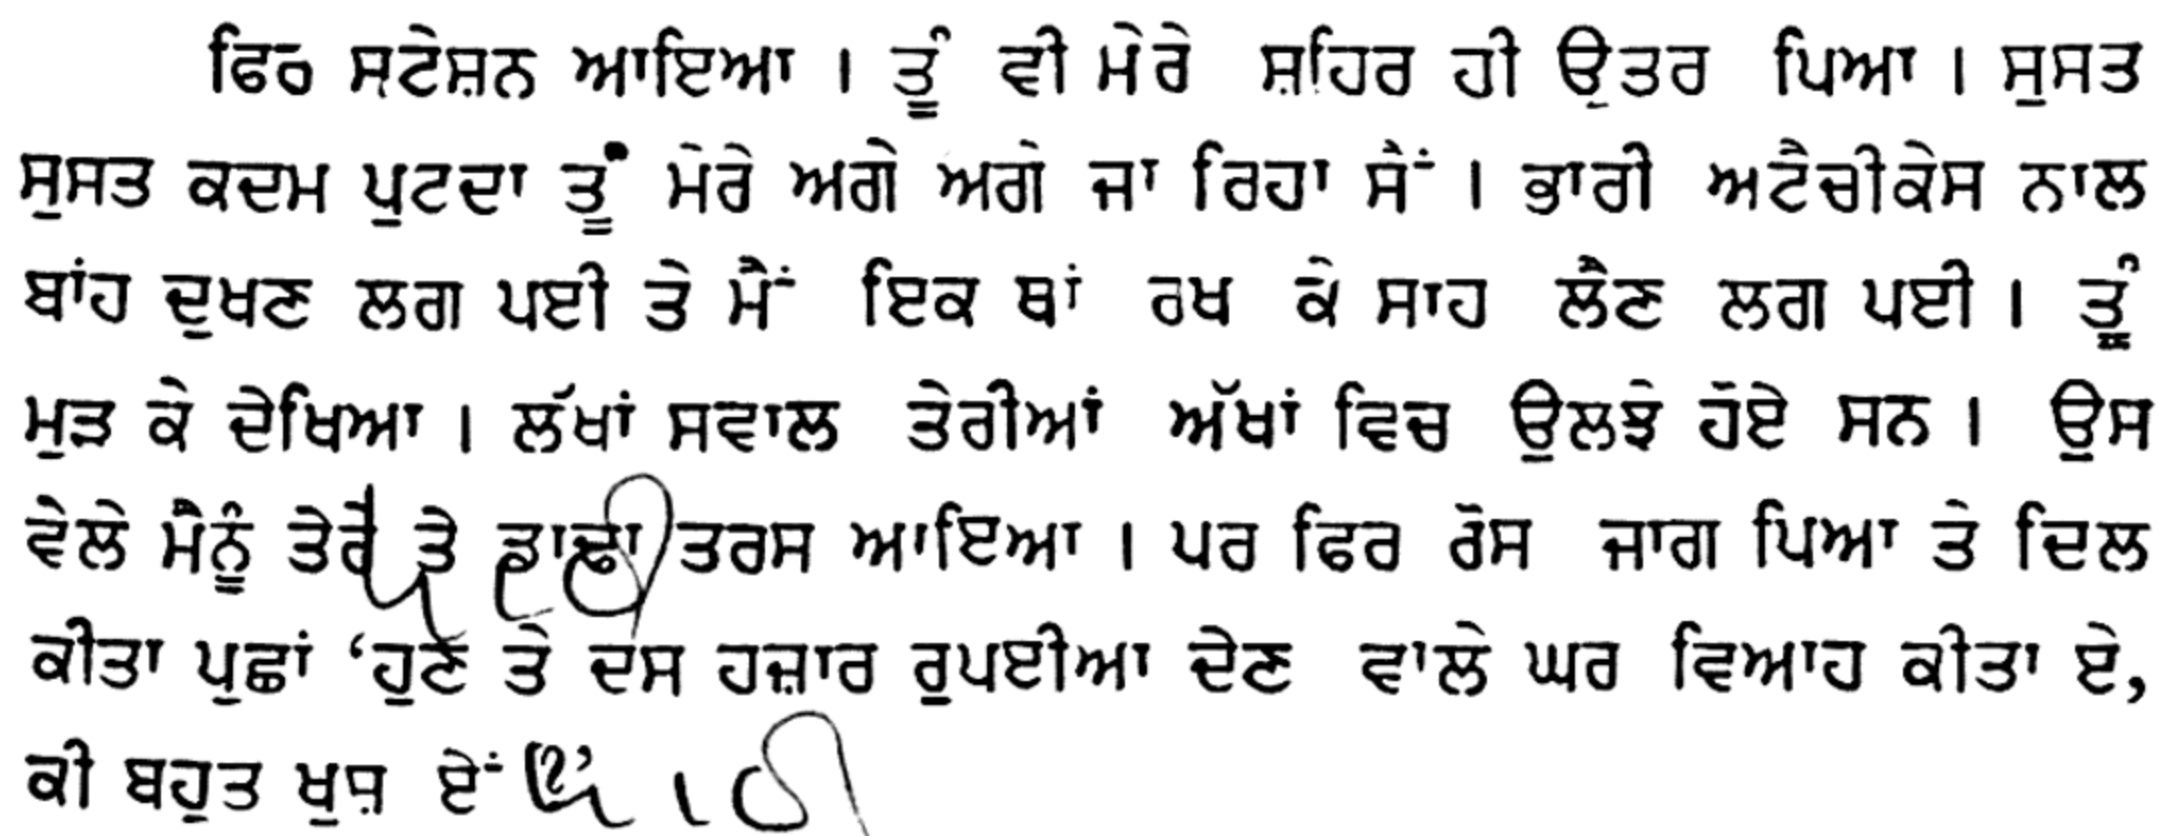 ਫਿਰ ਸਟੇਸ਼ਨ ਆਇਆ । ਤੂੰ ਵੀ ਮੇਰੇ ਸ਼ਹਿਰ ਹੀ ਉਤਰ ਪਿਆ । ਸੁਸਤ
ਸੁਸਤ ਕਦਮ ਪੁਟਦਾ ਤੂੰ ਮੇਰੇ ਅਗੇ ਅਗੇ ਜਾ ਰਿਹਾ ਸੈਂ । ਭਾਰੀ ਅਟੈਚੀਕੇਸ ਨਾਲ
ਬਾਂਹ ਦੁਖਣ ਲਗ ਪਈ ਤੇ ਮੈਂ ਇਕ ਥਾਂ ਰਖ ਕੇ ਸਾਹ ਲੈਣ ਲਗ ਪਈ । ਤੂੰ
ਮੁੜ ਕੇ ਦੇਖਿਆ । ਲੱਖਾਂ ਸਵਾਲ ਤੇਰੀਆਂ ਅੱਖਾਂ ਵਿਚ ਉਲਝੇ ਹੋਏ ਸਨ । ਉਸ
ਵੇਲੇ ਮੈਨੂੰ ਤੇਰੇ ਤੇ ਡਾਢਾ ਤਰਸ ਆਇਆ । ਪਰ ਫਿਰ ਰੋਸ ਜਾਗ ਪਿਆ ਤੇ ਦਿਲ
ਕੀਤਾ ਪੁਛਾਂ ‘ਹੁਣ ਤੇ ਦਸ ਹਜ਼ਾਰ ਰੁਪਈਆ ਦੇਣ ਵਾਲੇ ਘਰ ਵਿਆਹ ਕੀਤਾ ਏ,
ਕੀ ਬਹੁਤ ਖੁਸ਼ ਏਂ ?’